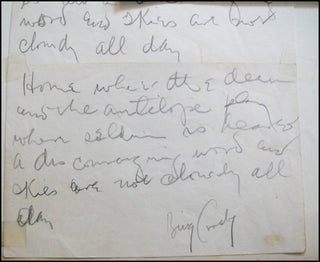 word and skies are not
cloudy all day
Home where the deer
and the antelope play
where seldom is heard
a discouraging word and
skies are not cloudy all
day
Bing Crosby